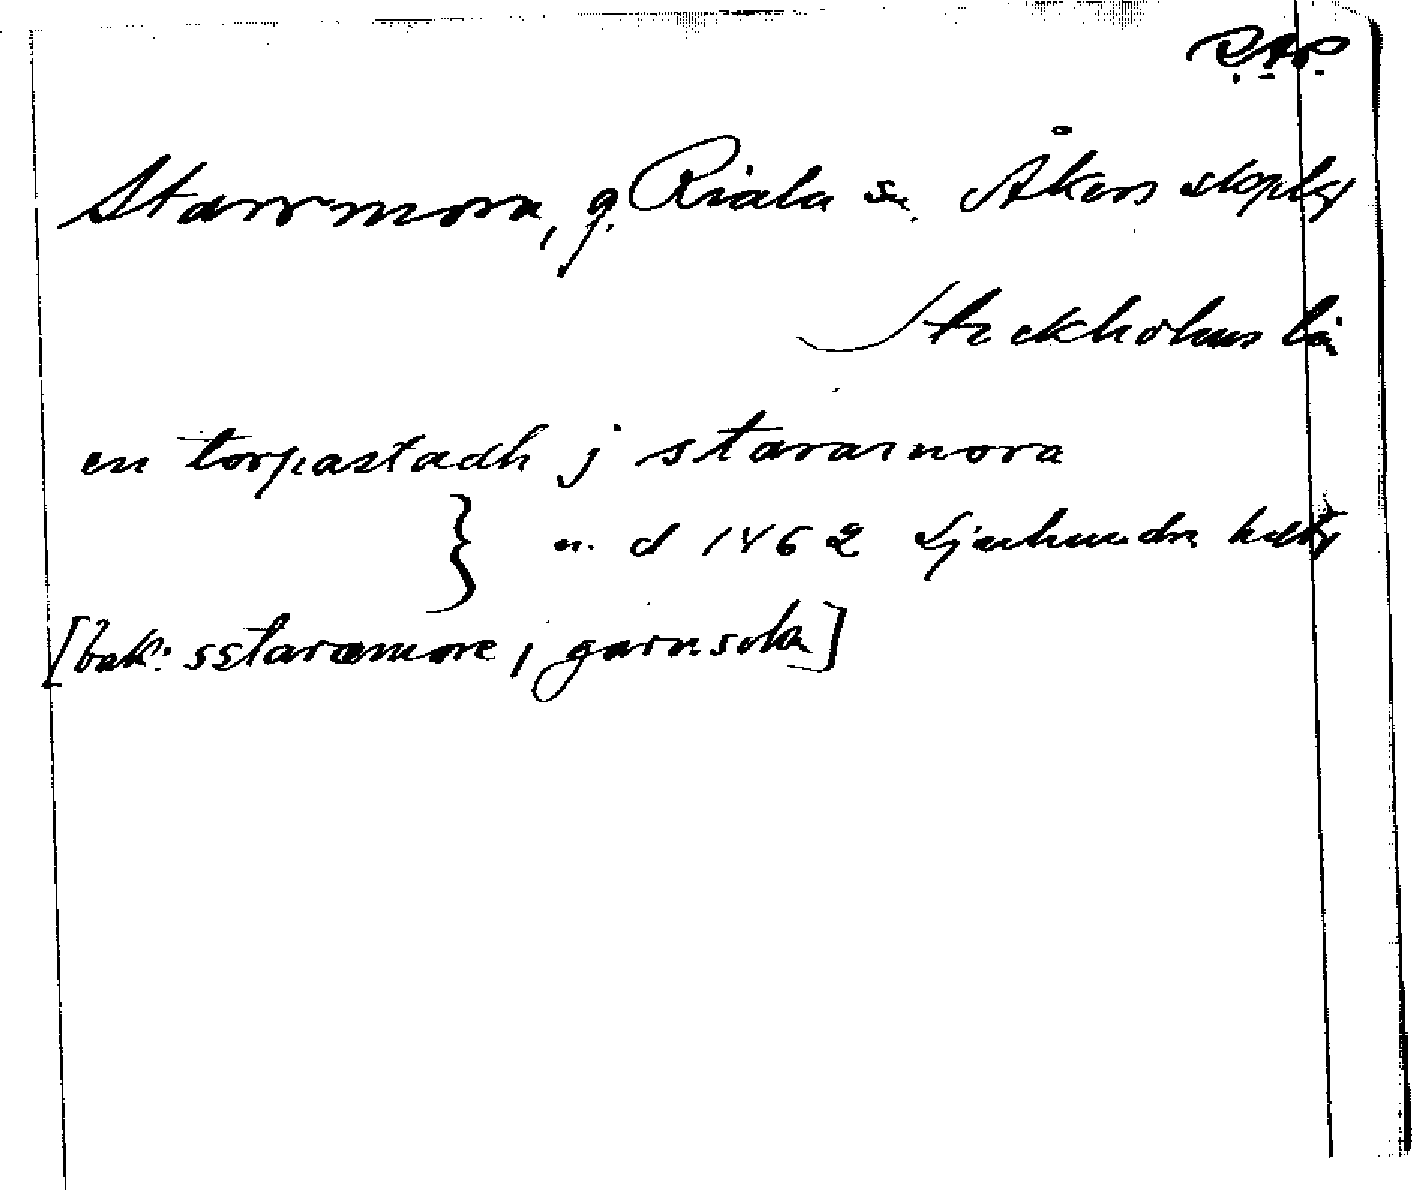 R.A.P.
Starrmora, g. Riala sn. Åkers skplg
Stockholms län
en torpastadh j stararnora
u. d 1462 Sjuhundra hdtg
[bak: sstaræmore, garnsvka]